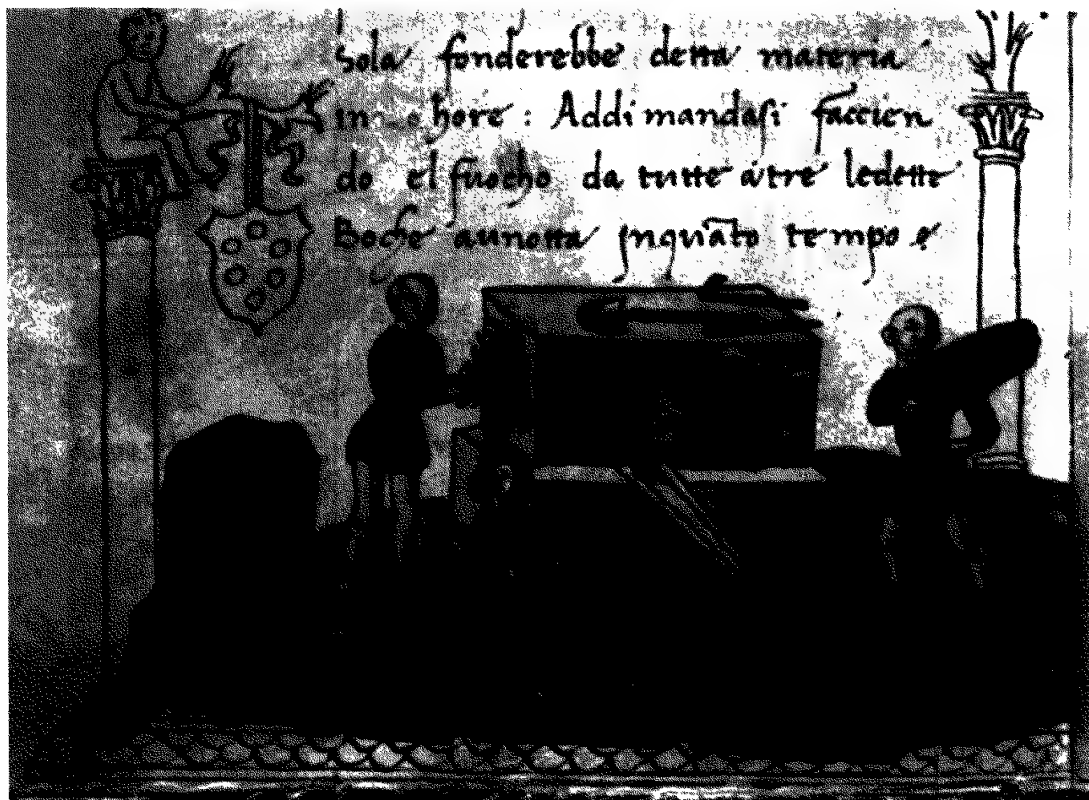 Sola fonderebbe detta materia
in hore : Addimandasi faccien
do el fuocho da tutte à tre ledette
Boche aunotta Inquãto tempo e